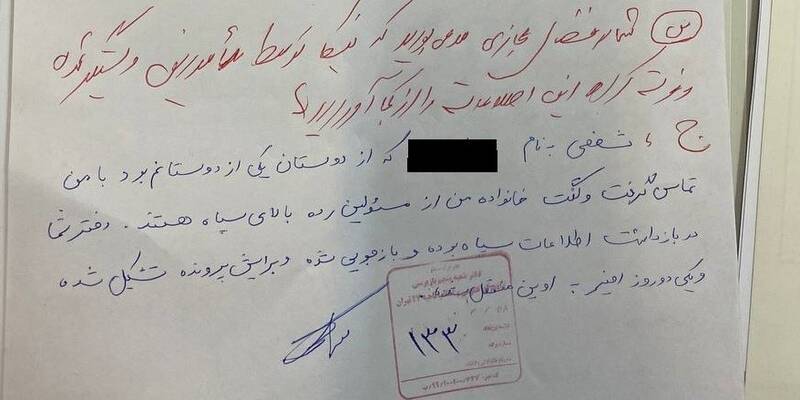 س) شما در فضای مجازی مدعی بودید که نیکا توسط مأمورین دستگیر شده
و فوت کرده این اطلاعات را از کجا آوردید؟
ج، شخصی به نام که از دوستان یکی از دوستانم بود با من
تماس گرفت و گفت خانواده من از مسئولین رده بالای سپاه هستند. دختر شما
در بازداشت اطلاعات سپاه بوده و بازجویی شده و برایش پرونده تشکیل شده
و یکی دو روز اخیر به اوین منتقل
۱۳۳۰